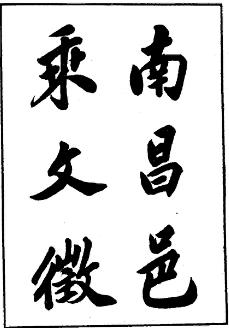 南昌邑
乘文徵